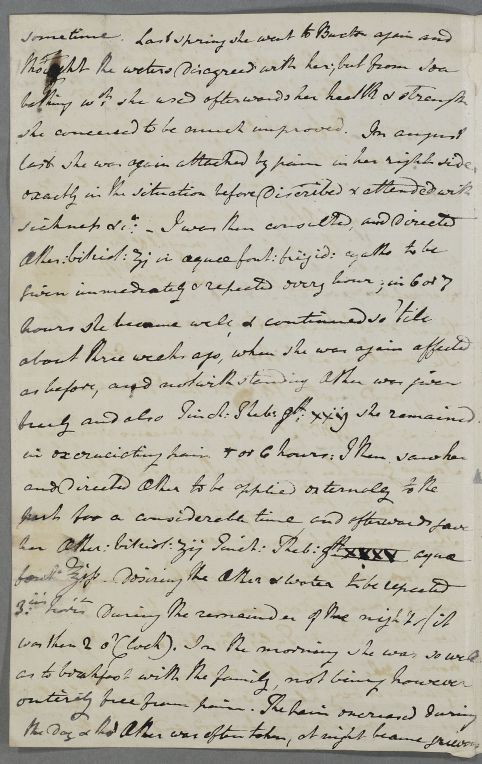 sometime. Last spring she went to Buxton again and
thought the waters Disagreed with her; but from sea
bathing wch. she used afterwards her health & strength
she conceived to be much improved. In august
last she was again attacked by pain in her right side,
exactly in the situation before Discribed & attended with
sickness &c. - I was then consulted, and Directed
Æther: vitriol: ʒj in aquæ font: frigid: cyatho to be
given immediately & repeated every hour; in 6 or 7
hours she became well, & continued so 'till
about three weeks ago, when she was again affected
as before, and notwithstanding Æther was given
freely and also Tinct: Theb: gtt: xxx she remained
in excruciating pain + or 6 hours: I then saw her
and Directed Æther to be applied externally to the
part for a considerable time and afterwards gave
her Æther: vitriol: ʒij Tinct: Theb: gtt xxxv aquæ
font: ʒjss. Desiring the Æther & water to be repeated
3iis horis During the remainder of the night (it
was then 2 o'Clock). In the morning she was so well
as to breakfast with the family, not being however
entirely free from pain. The pain encreased During
the Day & tho' Æther was often taken, at night became grievous